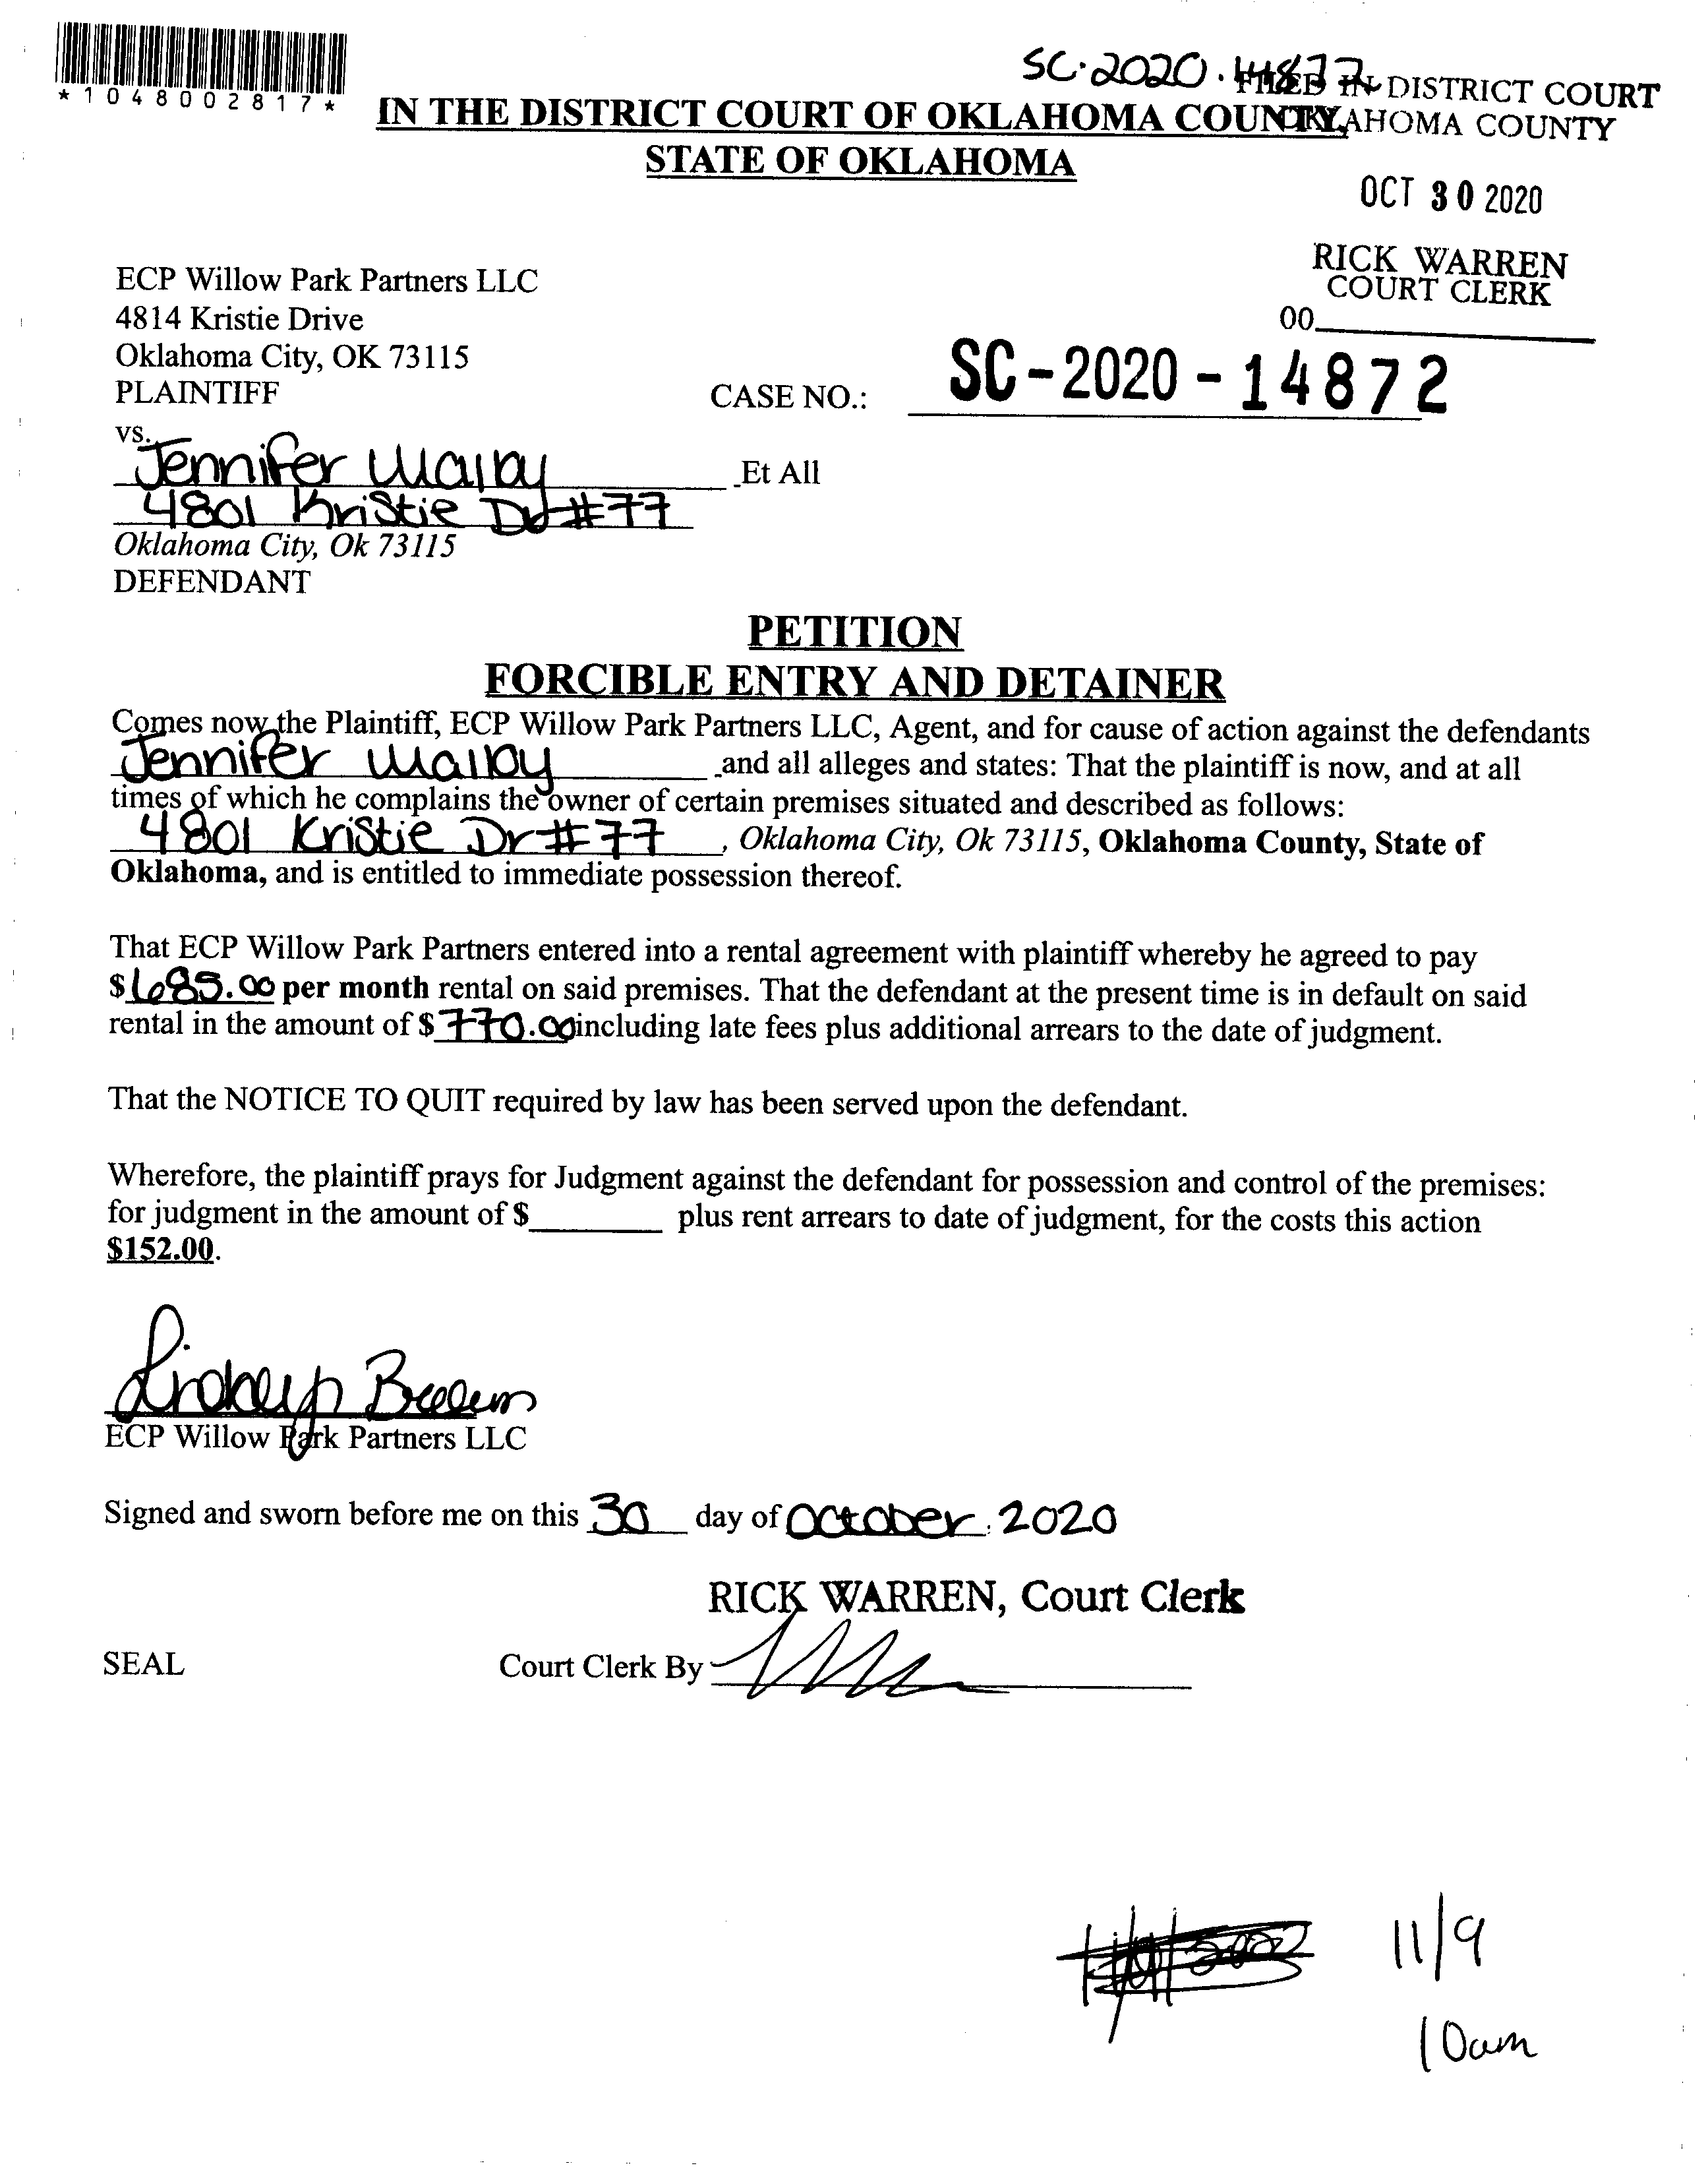 *1048002817*
SC-2020-14872
FILED IN DISTRICT COURT
OKLAHOMA COUNTY
IN THE DISTRICT COURT OF OKLAHOMA COUNTY,
STATE OF OKLAHOMA
OCT 30 2020
RICK WARREN
COURT CLERK
00
ECP Willow Park Partners LLC
4814 Kristie Drive
Oklahoma City, OK 73115
PLAINTIFF
CASE NO.: SC-2020-14872
vs.
Jennifer Et All
4801 Kristie Dr #77
Oklahoma City, Ok 73115
DEFENDANT
PETITION
FORCIBLE ENTRY AND DETAINER
Comes now the Plaintiff, ECP Willow Park Partners LLC, Agent, and for cause of action against the defendants
Jennifer and all alleges and states: That the plaintiff is now, and at all
times of which he complains the owner of certain premises situated and described as follows:
4801 Kristie Dr #77, Oklahoma City, Ok 73115, Oklahoma County, State of
Oklahoma, and is entitled to immediate possession thereof.
That ECP Willow Park Partners entered into a rental agreement with plaintiff whereby he agreed to pay
$685.00 per month rental on said premises. That the defendant at the present time is in default on said
rental in the amount of $770.00 including late fees plus additional arrears to the date of judgment.
That the NOTICE TO QUIT required by law has been served upon the defendant.
Wherefore, the plaintiff prays for Judgment against the defendant for possession and control of the premises:
for judgment in the amount of $ plus rent arrears to date of judgment, for the costs this action
$152.00.
ECP Willow Park Partners LLC
Signed and sworn before me on this 30 day of October. 2020
RICK WARREN, Court Clerk
SEAL
Court Clerk By
11/9
10am